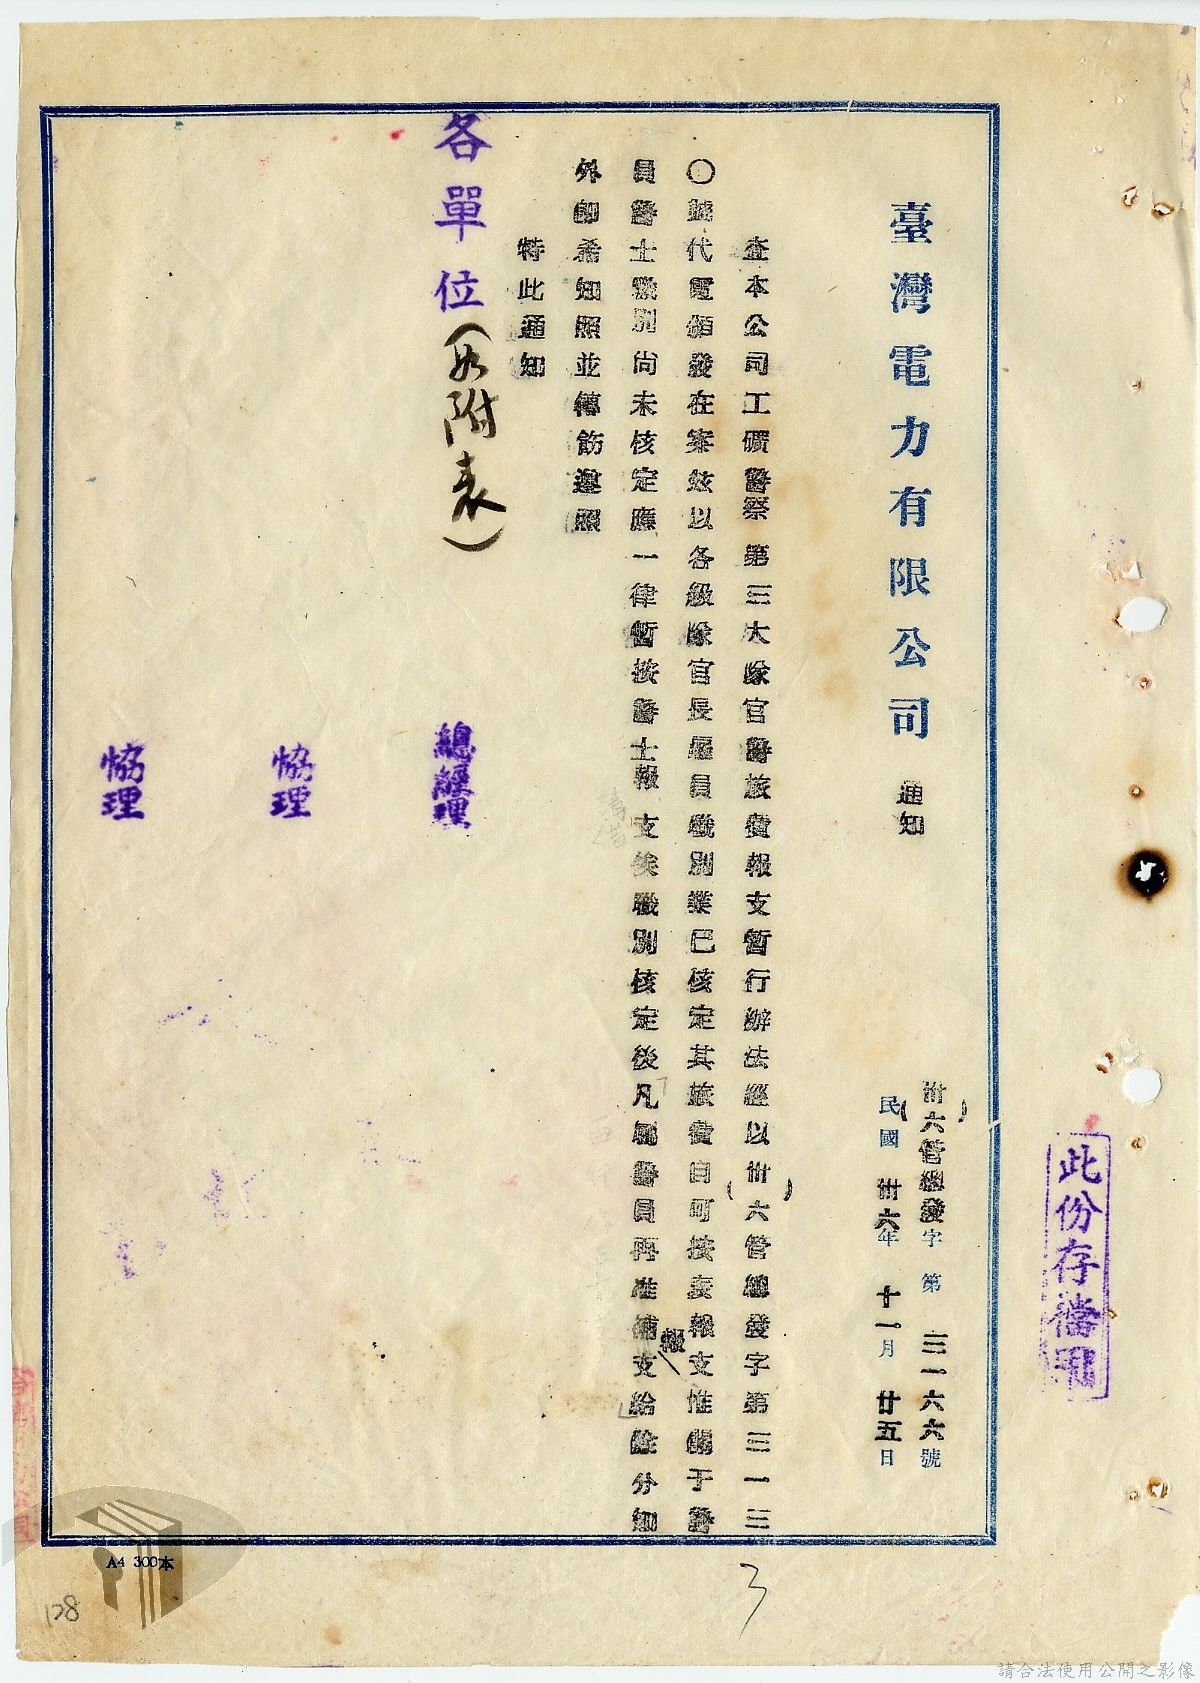 臺灣電力有限公司 通知
(卅六)管總發字第三一六六號
民國卅六年十一月廿五日
查本公司工礦警察第三大隊官警旅費報支暫行辦法經以(卅六)管總發字第三一三
〇號代電頒發在案玆以各級隊官長雇員職別業已核定其旅費自可按表報支惟關于警
員警士職別尚未核定應一律暫按警士報支俟職別核定後凡屬警員再准補報支給除分知
外即希知照並轉飭遵照
特此通知
各單位(如附表)
總經理
協理
協理
此份存檔用
A4 300本
3
128
請合法使用公開之影像